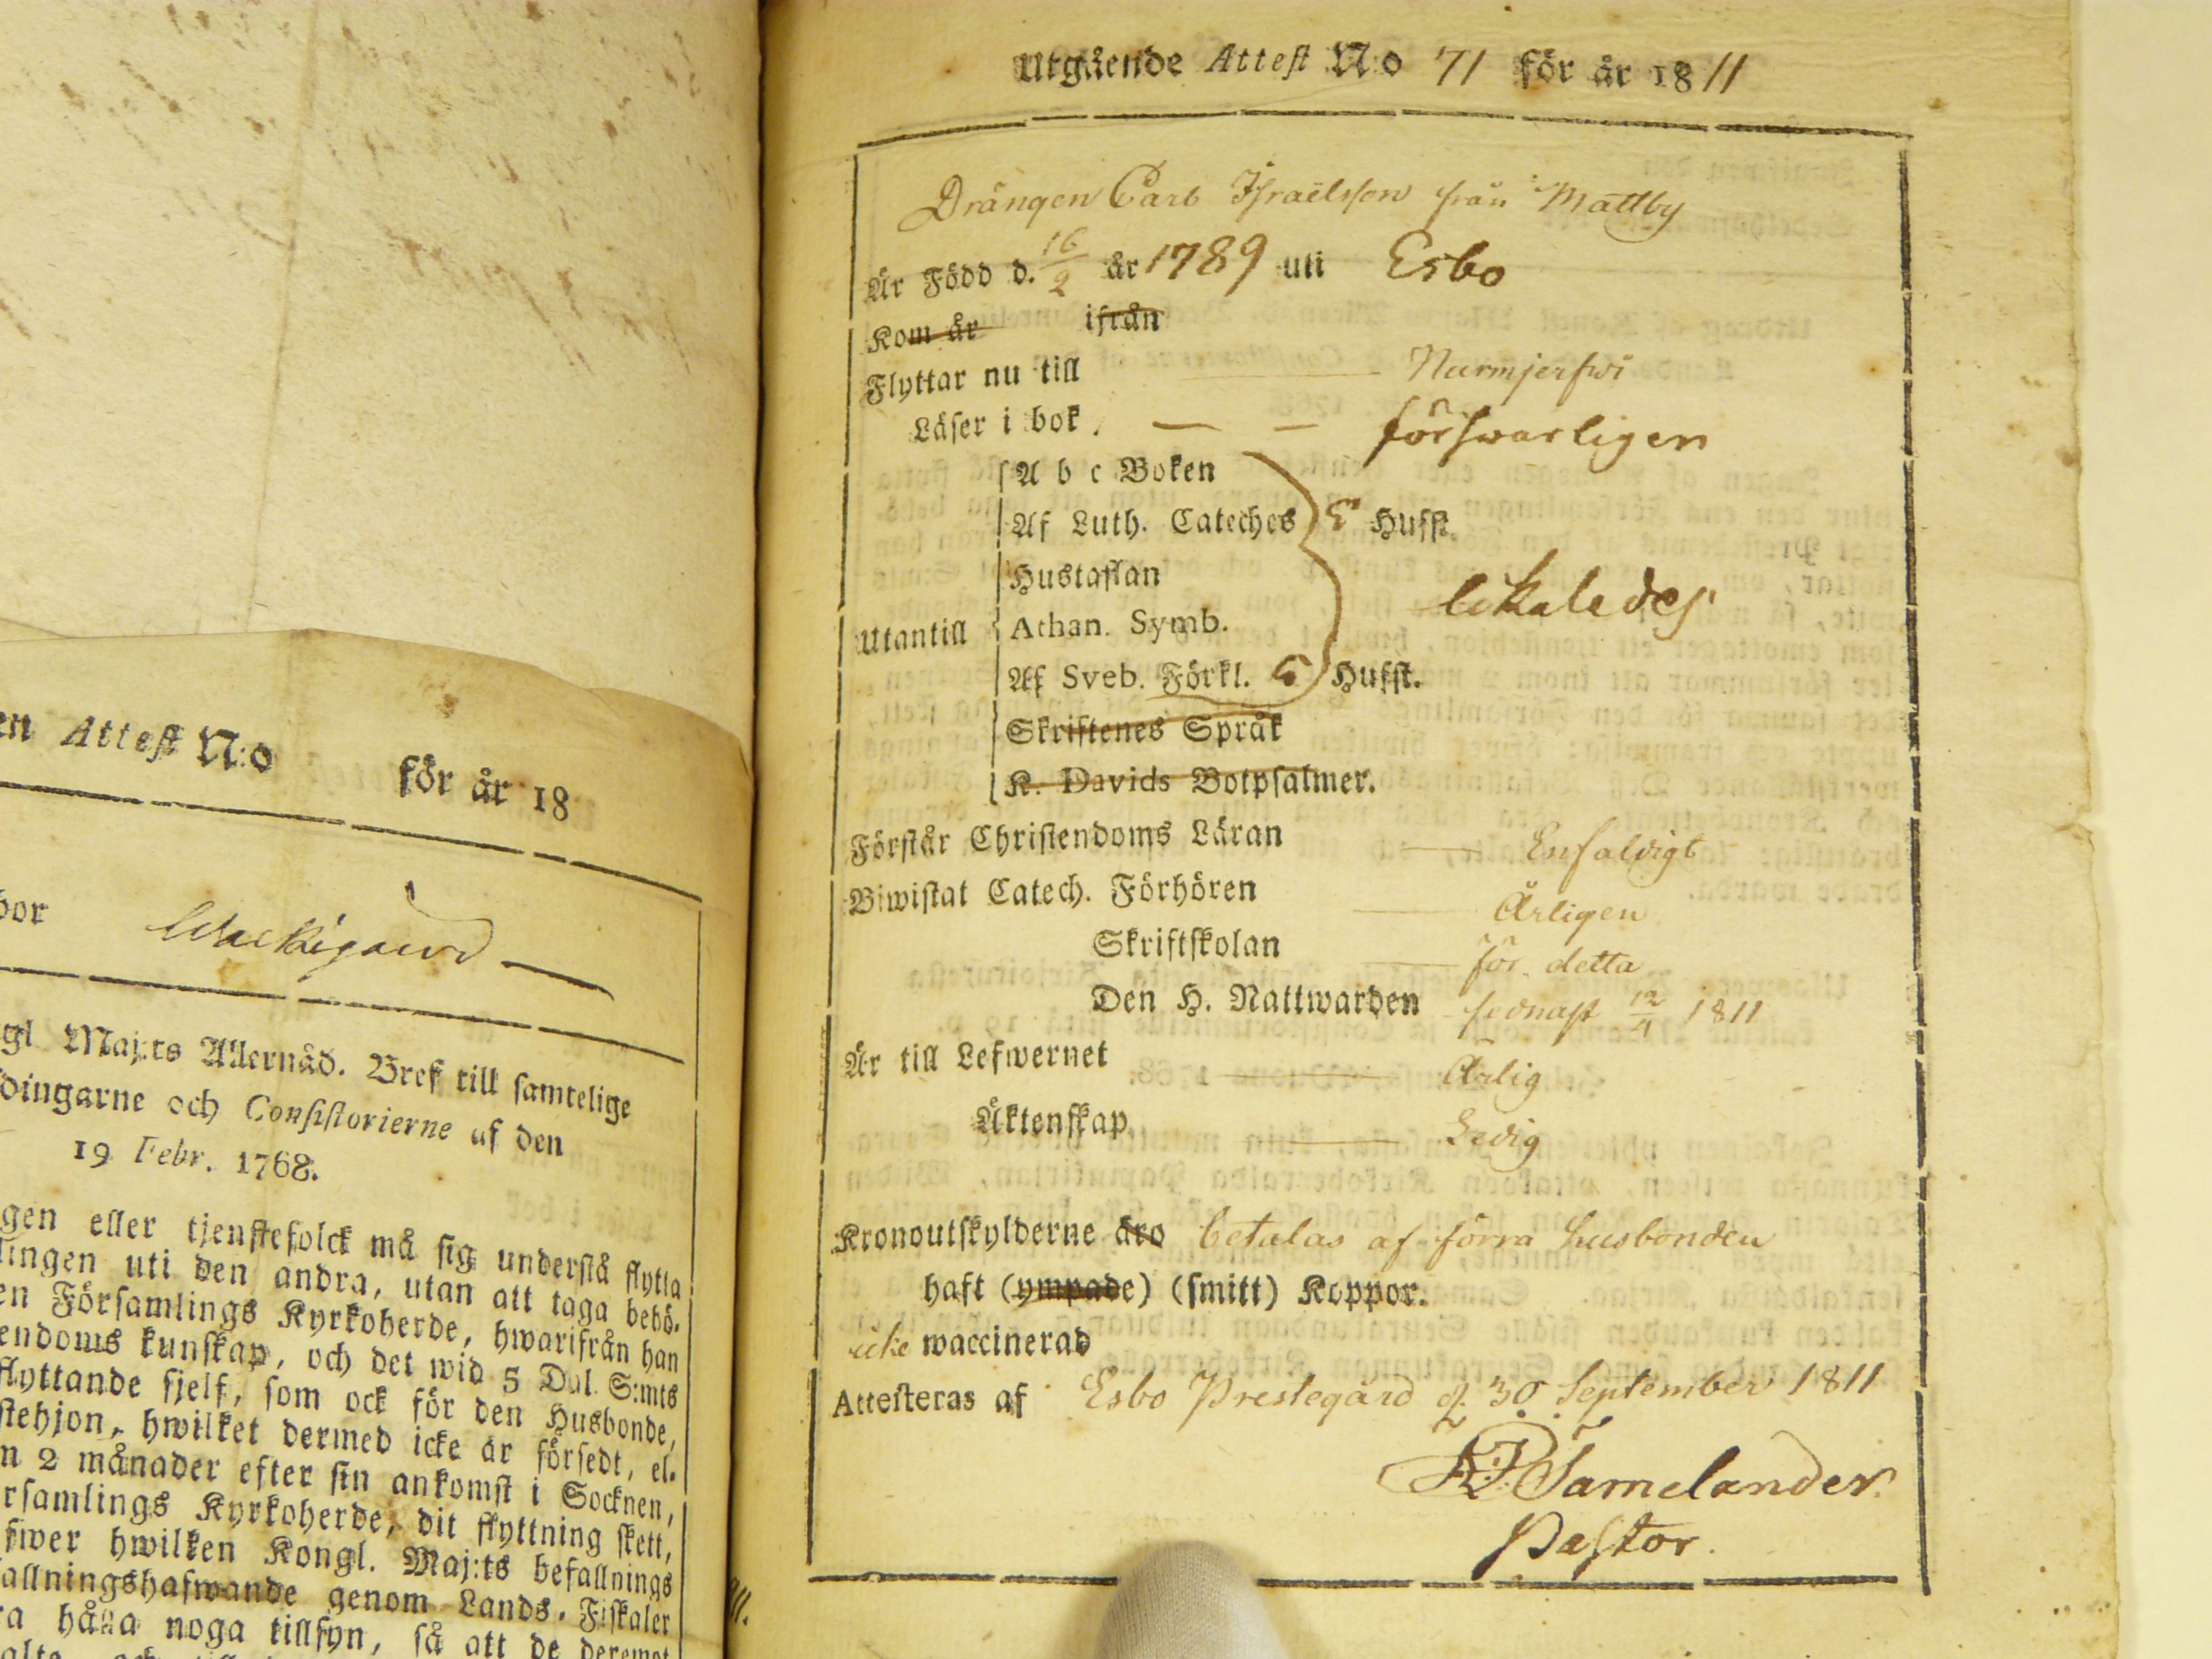 en Attest N:o för år 18
bor
gl Maj:ts Allernåd. Bref till samtelige
dingarne och Consistorierne af den
19 Febr. 1768.
gen eller tjenstefolck må sig understå flytta
lingen uti den andra, utan att taga behö-
en Församlings Kyrkoherde, hwarifrån han
endoms kunskap, och det wid 5 Dal. S:mts
flyttande sjelf, som ock för den Husbonde,
stehjon, hwilket dermed icke är försedt, el-
n 2 månader efter sin ankomst i Socknen,
rsamlings Kyrkoherde, dit flyttning skett,
fwer hwilken Kongl. Maj:ts befallnings
allningshafwande genom Lands-Fiskaler
ra hålla noga tillsyn, så att de deremot
Utgående Attest N:o 71 för år 1811
Drängen Carl Israelsson från Mattby
Är Född d. 16/2 år 1789 uti Esbo
Kom år ifrån
Flyttar nu till Nurmjerfwi
Läser i bok försvarligen
A b c Boken
Af Luth. Cateches 5 Hufst.
Hustaflan
likaledes
Utantill Athan. Symb.
Af Sveb. Förkl. 5 Hufst.
Skriftenes Språk
K. Davids Botpsalmer.
Förstår Christendoms Läran Enfaldigt
Biwistat Catech. Förhören Årligen
Skriftskolan för detta
Den H. Nattwarden sednast 12/4 1811
Är till Lefwernet Ärlig
Äktenskap Ledig
Kronoutskylderne äro betalas af förra husbonden
haft (ympade) (smitt) Koppor.
icke waccinerad
Attesteras af Esbo Prestegård d. 30 September 1811
Samelander.
Pastor.